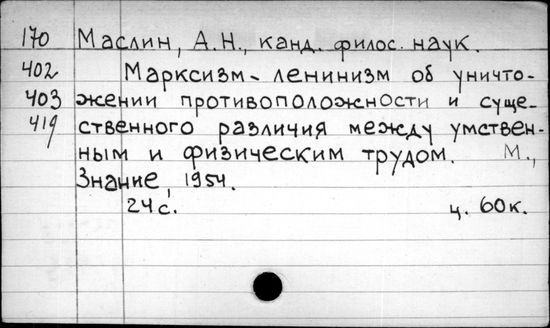 170 Маслин, А.Н., канд. филос. наук.
402 Марксизм-ленинизм об уничто-
403 жении противоположности и суще-
419 ственного различия между умствен-
ным и физическим трудом. М.,
Знание, 1954.
24 с. ц. 60 к.